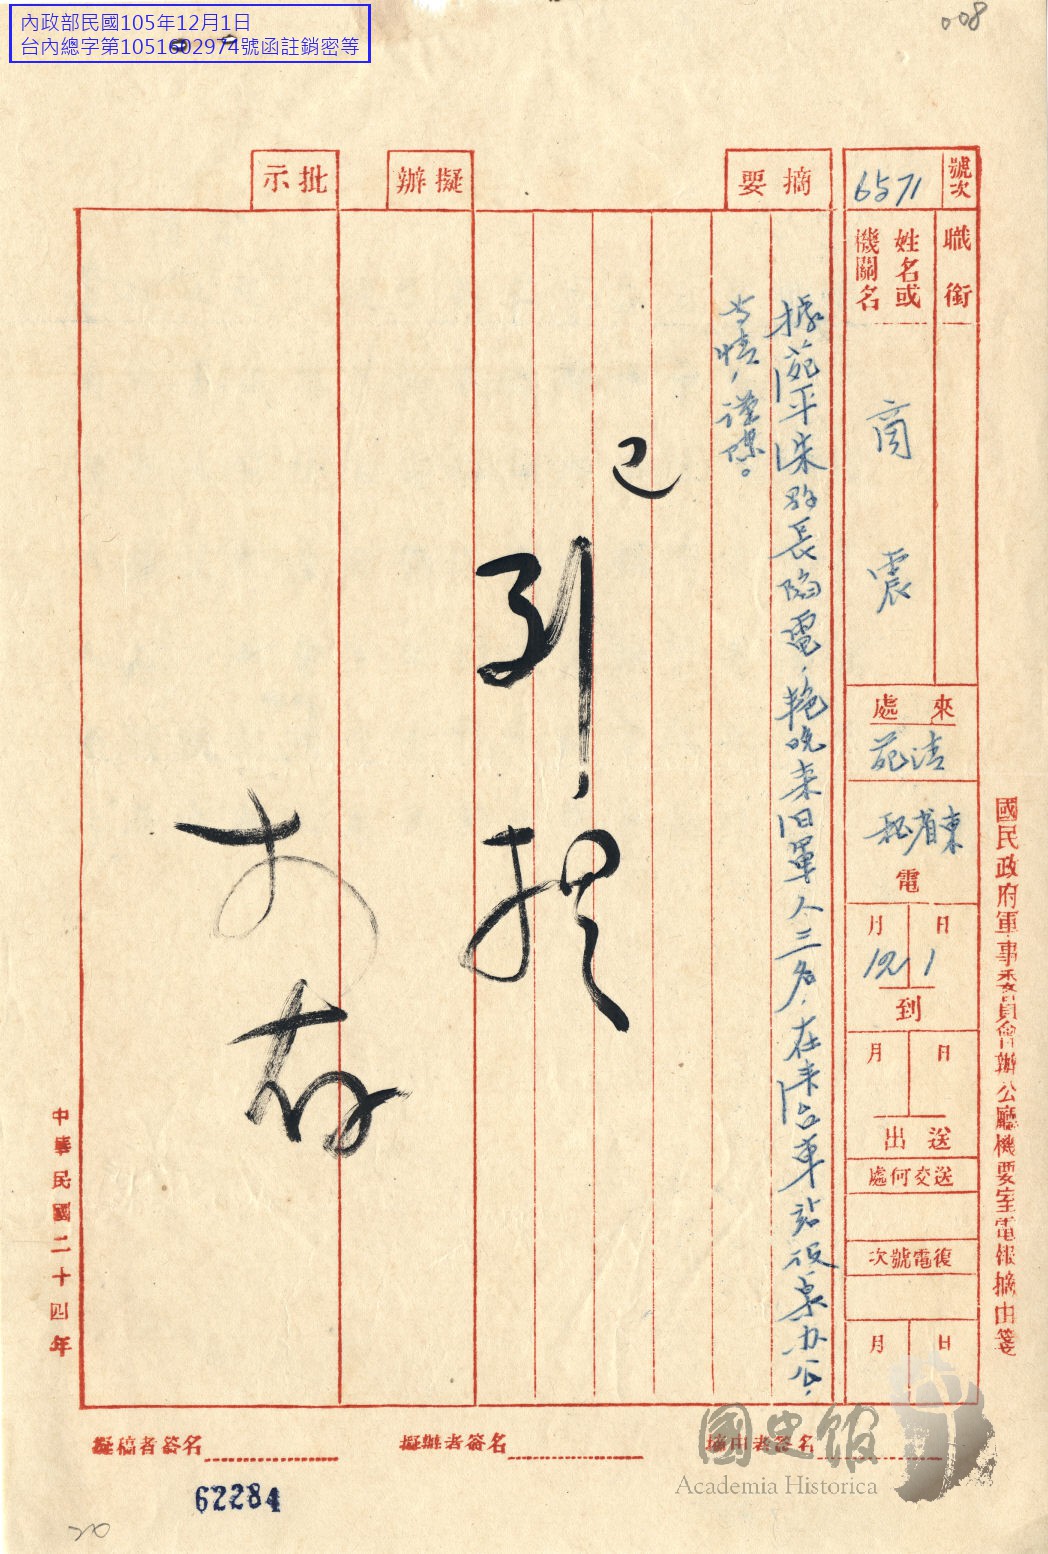 內政部民國105年12月1日
台內總字第1051602974號函註銷密等
008
號次
6571
職銜
姓名或
機關名
商震
來處
清苑
東省秘
電
月 日
12 1
到
月 日
送出
送交何處
復電號次
月 日
摘要
據苑平宋縣長陷電,艷晚來日軍人三名,在來陷車站後泉办公,
等情,謹陳。
擬辦
已
引
批示
存
國民政府軍事委員會辦公廳機要室電報摘由箋
中華民國二十四年
摘由者簽名
擬辦者簽名
擬稿者簽名
62284
20
國史館
Academia Historica